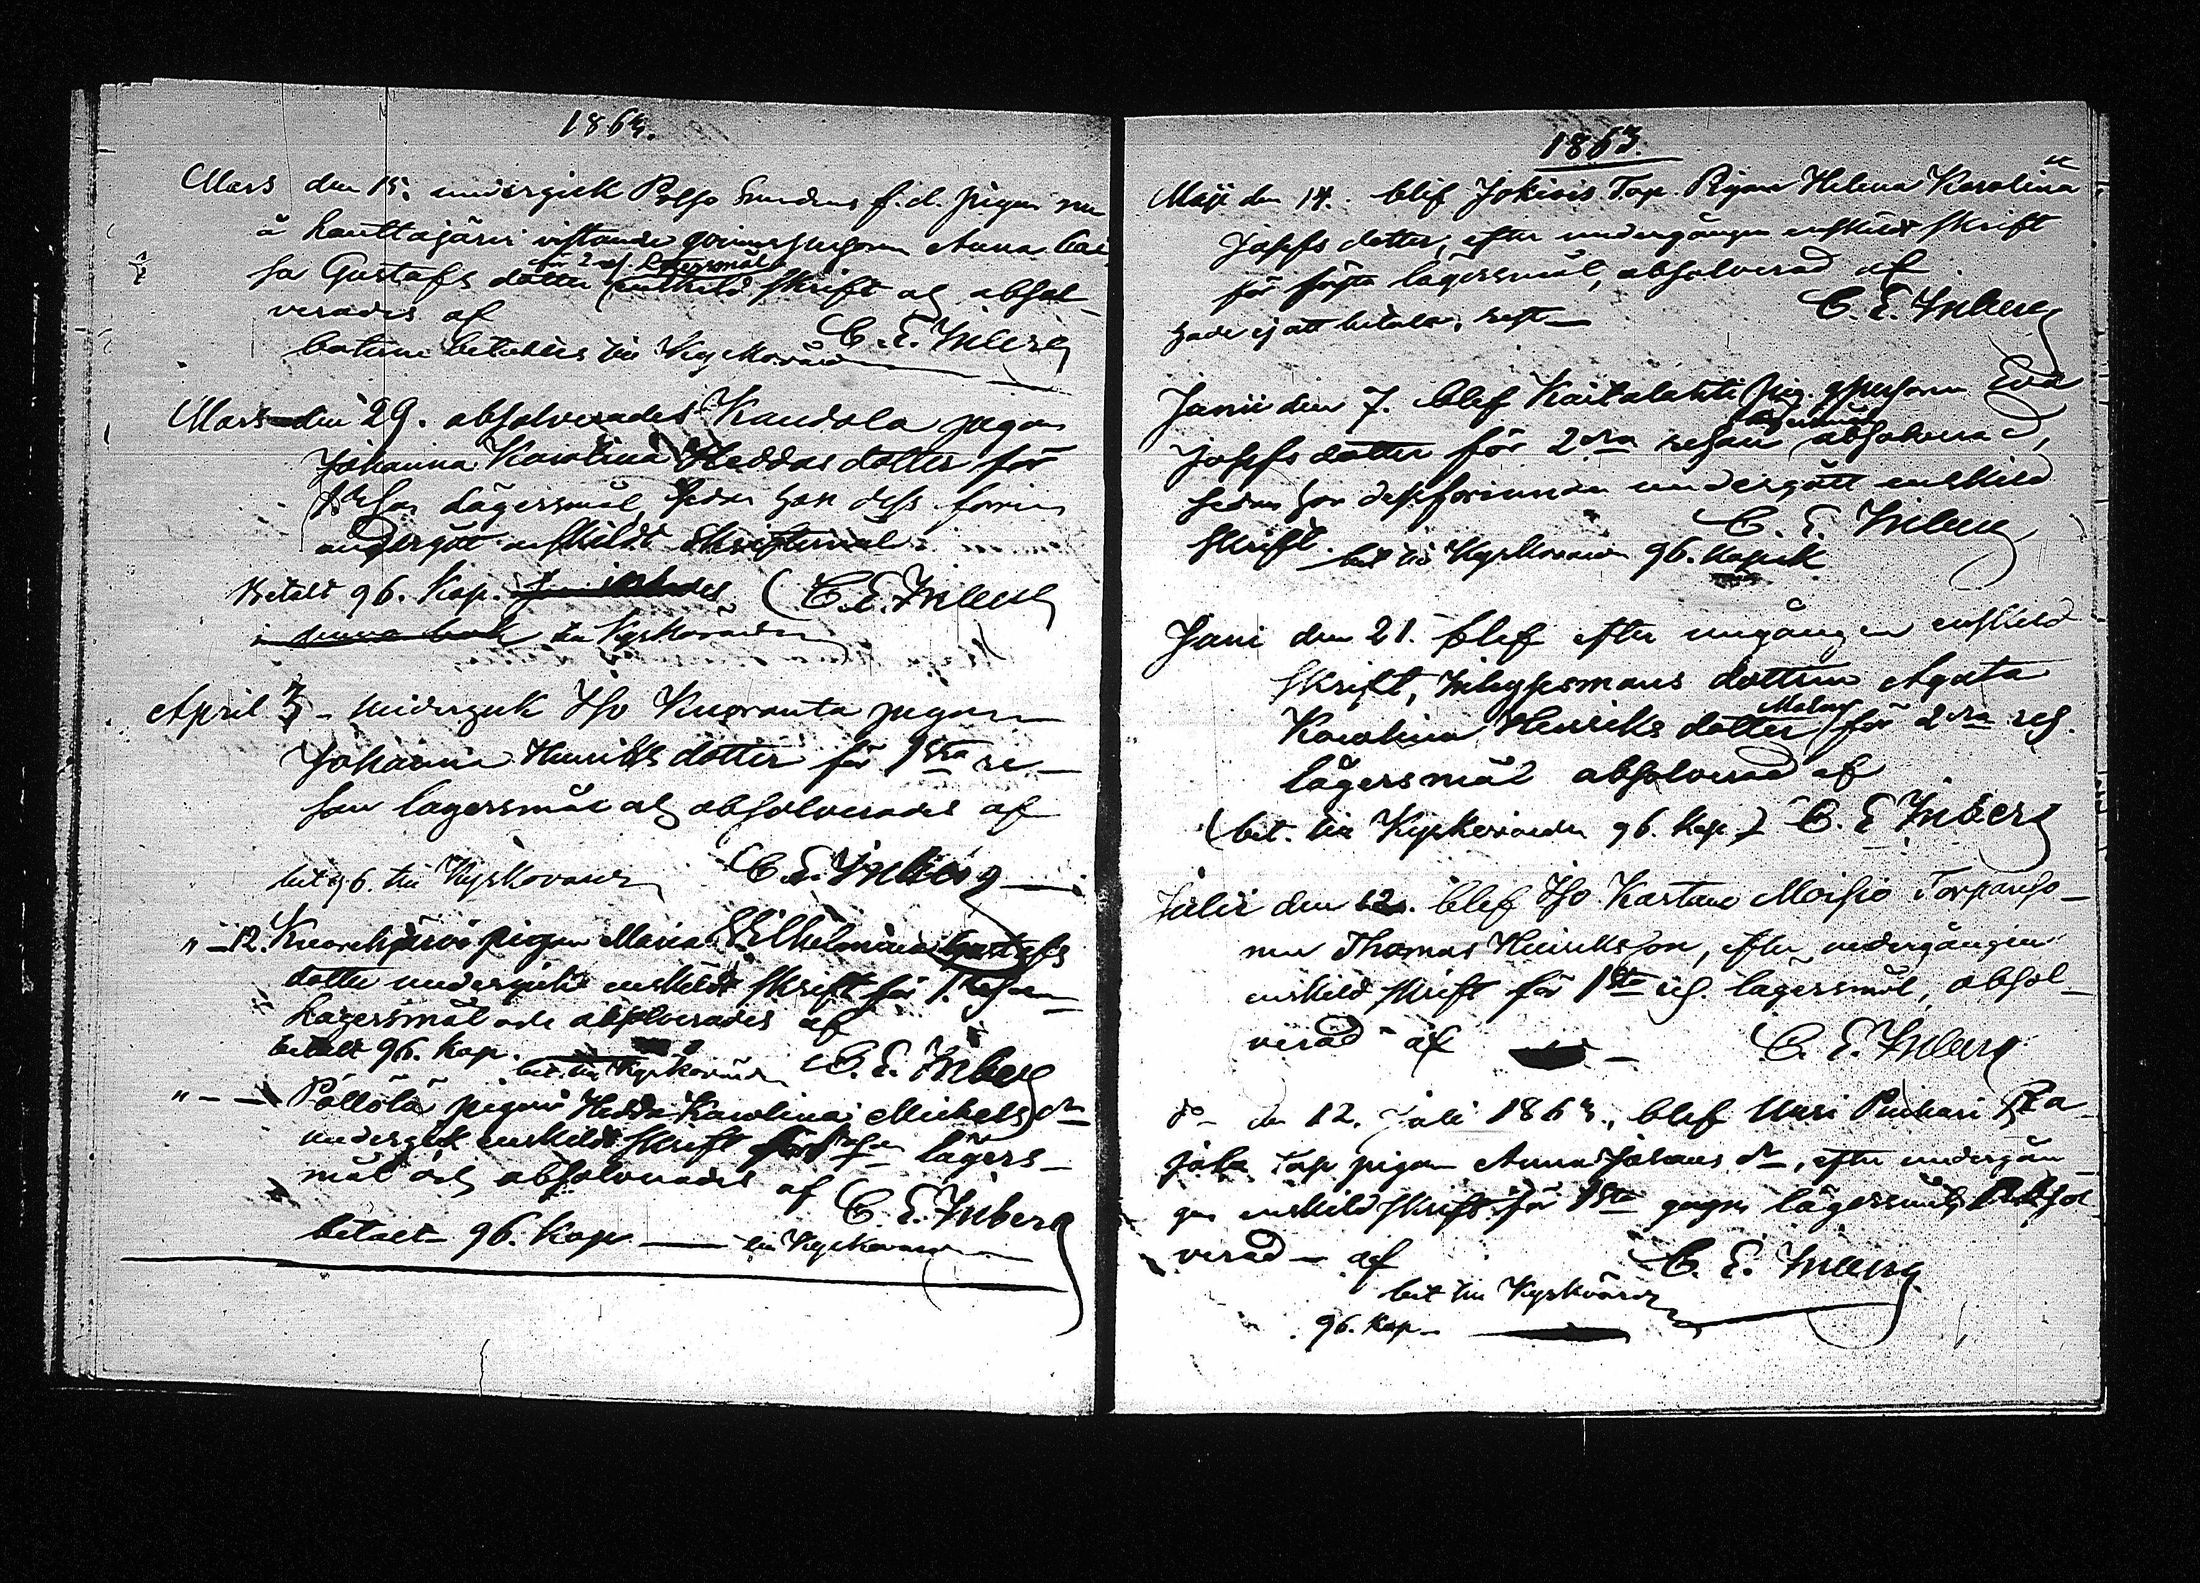 1863.
Mars den 15. undergick Polso Sundens f. d. pigan nu
å Lauttajärvi vistande qvinnspersonen Anna Cai
sa Gustafs dotter enskild skrift och absol-
för 2 ggn lägersmål
verades af
C. E. Inberg
boten betaltes till Kyrkovärden
Mars den 29. absolverades Kaudola pigan
Johanna Karolina Heddas dotter för
1 resan Lägersmål, sedan hon dess förin
undergått enskildt Skriftermål.
Betalt 96. Kop. C. E. Inberg
i denna bok till Kyrkovärden
April 3 - undergick Iso Kuoranta pigan
Johanna Henriks dotter för 1sta re-
san lägersmål och absolverades af
bet 96. till Kyrkovärden C. E. Inberg
" - 12. Kuorehjärvi pigan Maria Wilhelmina Gustafs
dotter undergick enskildt skrift för 1. resan
Lägersmål och absolverades af
betalt 96. Kop. bet. till Kyrkovärden C. E. Inberg
" - - Pöllölä pigan Hedda Karolina Michels dr
undergick enskildt skrift för 1 resan lägers-
mål och absolverades af
C. E. Inberg
betalt 96. Kop till Kyrkovärden
1863.
Maji den 14. blef Jokiois Torp. Pigan Helena Karolina
Josefs dotter, efter undergången enskildt skrift
för första lägersmål, absolverad af
C. E. Inberg
hade ej att betala, rest
Junii den 7. blef Kaitalahti pig. qpersonen Eva
Josefs dotter för 2dra resan absolverad,
lägersmål
sedan hon dessförinnan undergått enskild
skrift. C. E. Inberg
bet till Kyrkovärden 96. Kopek
Juni den 21. blef efter ungången enskild
skrift, Inhysesmans dottern Agata
Karolina Henriks dotter för 2dra res.
lägersmål absolverad af
(bet. till Kyrkovärden 96. Kop.) C. E. Inberg
Julii den 12. blef Iso Kartano Moisio Torpareso-
nen Thomas Henriksson, efter undergången
enskild skrift för 1sta res. lägersmål, absol-
verad af C. E. Inberg
do den 12. Juli 1863, blef Uusi Punkari Ra-
jala Torp pigan Anna Johans dr, efter undergån-
gen enskild skrift för 1sta gagn lägersmål, absol
verad - af C. E. Inberg
bet till Kyrkvärden
96. Kop.